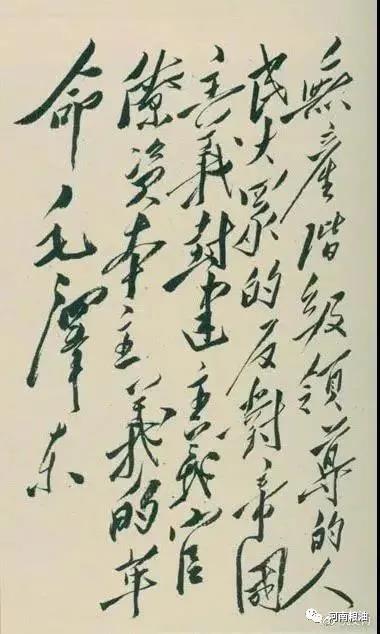 無產階級領導的人
民大眾的反對帝國
主義封建主義官
僚資本主義的革
命毛澤東
河南粮油